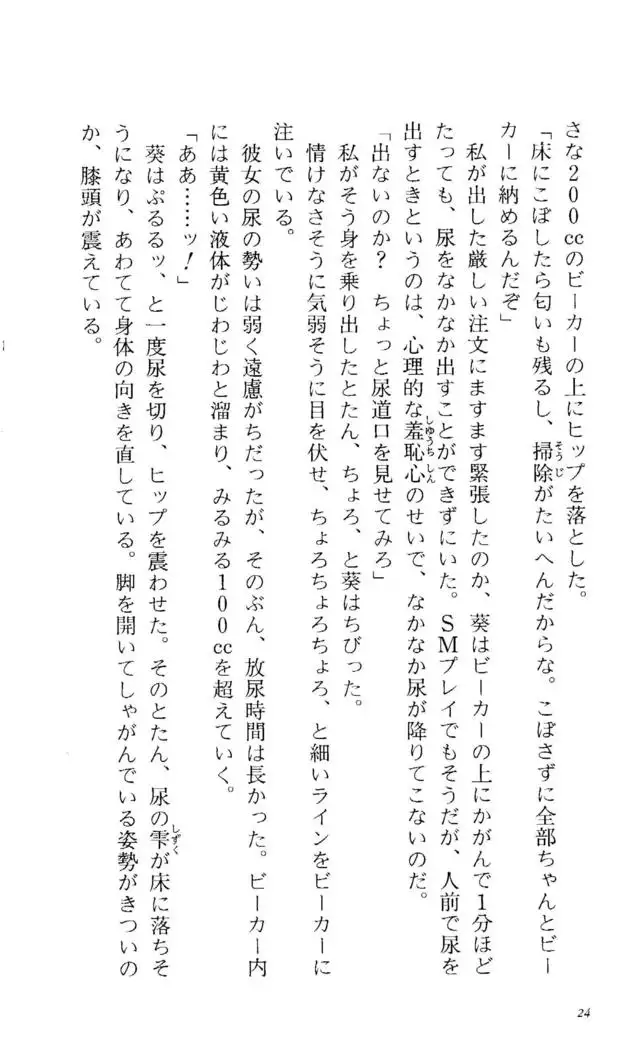 さな200ccのビーカーの上にヒップを落とした。
「床にこぼしたら匂いも残るし、掃除がたいへんだからな。こぼさずに全部ちゃんとビー
カーに納めるんだぞ」
私が出した厳しい注文にますます緊張したのか、葵はビーカーの上にかがんで1分ほど
たっても、尿をなかなか出すことができずにいた。SMプレイでもそうだが、人前で尿を
出すときというのは、心理的な羞恥心のせいで、なかなか尿が降りてこないのだ。
「出ないのか？　ちょっと尿道口を見せてみろ」
私がそう身を乗り出したとたん、ちょろ、と葵はちびった。
情けなさそうに気弱そうに目を伏せ、ちょろちょろちょろ、と細いラインをビーカーに
注いでいる。
彼女の尿の勢いは弱く遠慮がちだったが、そのぶん、放尿時間は長かった。ビーカー内
には黄色い液体がじわじわと溜まり、みるみる100ccを超えていく。
「ああ……ッ！」
葵はぷるるッ、と一度尿を切り、ヒップを震わせた。そのとたん、尿の雫が床に落ちそ
うになり、あわてて身体の向きを直している。脚を開いてしゃがんでいる姿勢がきついの
か、膝頭が震えている。
そうじ
しゅうちしん
しずく
24